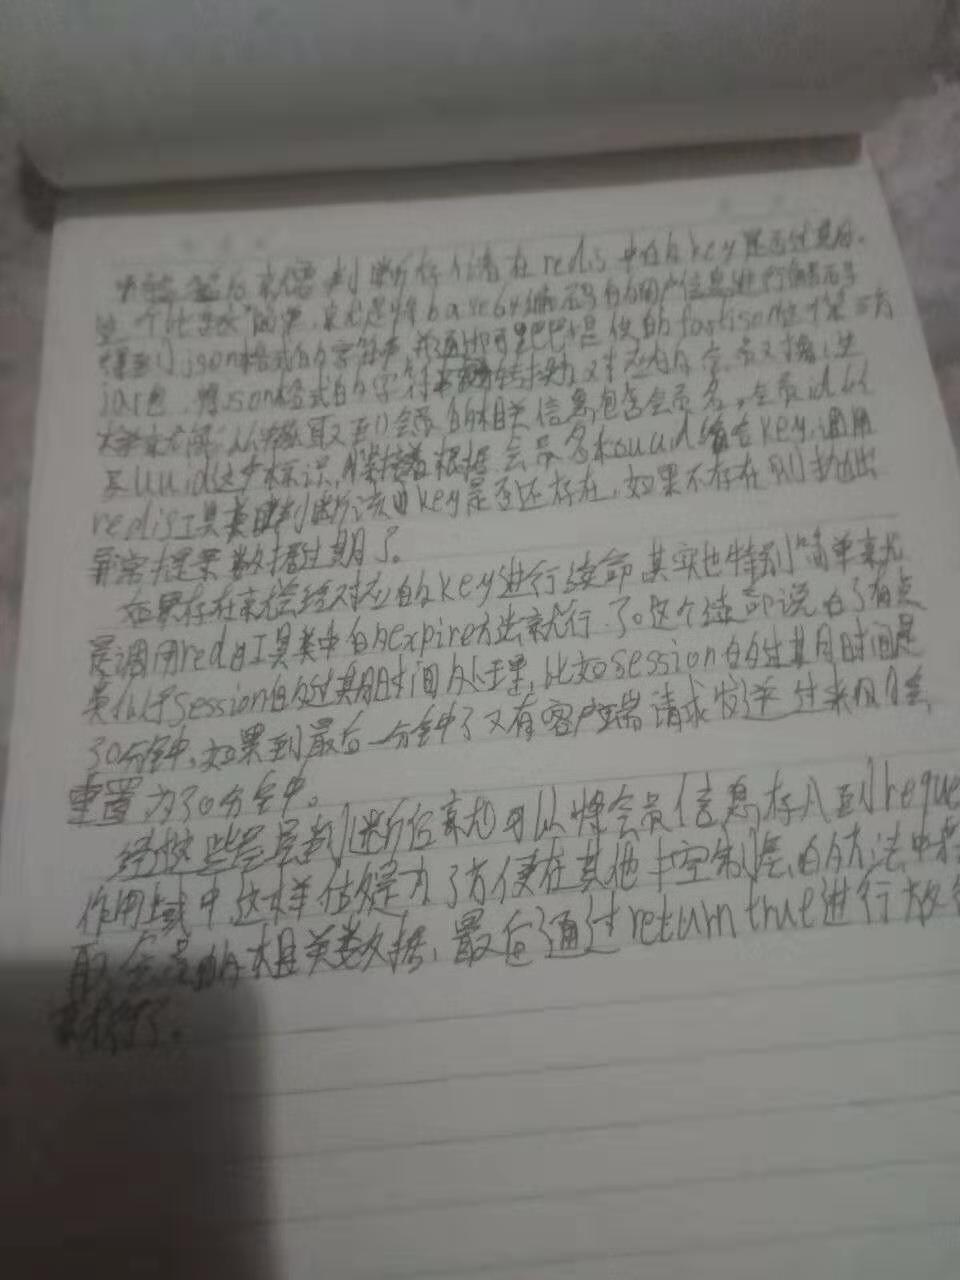 后就需要判断存储在redis中的key是否过期。
这个比较简单,就是将base64编码的用户信息进行编码
得到json格式的字符串,并通过阿里巴巴提供的fastjson这个第三方
jar包,将json格式的字符串转换为对象
从中取到会员的相关信息包含会员名,会员id以
及uuid这个标识,接着根据会员名和uuid结合key,调用
redis工具类判断该key是否还存在,如果不存在则抛出
异常提示数据过期了。
如果存在就会给对应的key进行续命其实也特别简单就
是调用redis工具类中的expire方法就行了。这个续命说白了有点
类似于session的过期时间处理,比如session的过期时间是
30分钟,如果到最后一分钟了又有客户端请求发送过来则会
重置为30分钟。
经过这些层层判断后就可以将会员信息存入到reque
作用域中这样做是为了方便在其他控制层的方法中获
取会员的相关数据,最后通过return true进行放行
就行了。